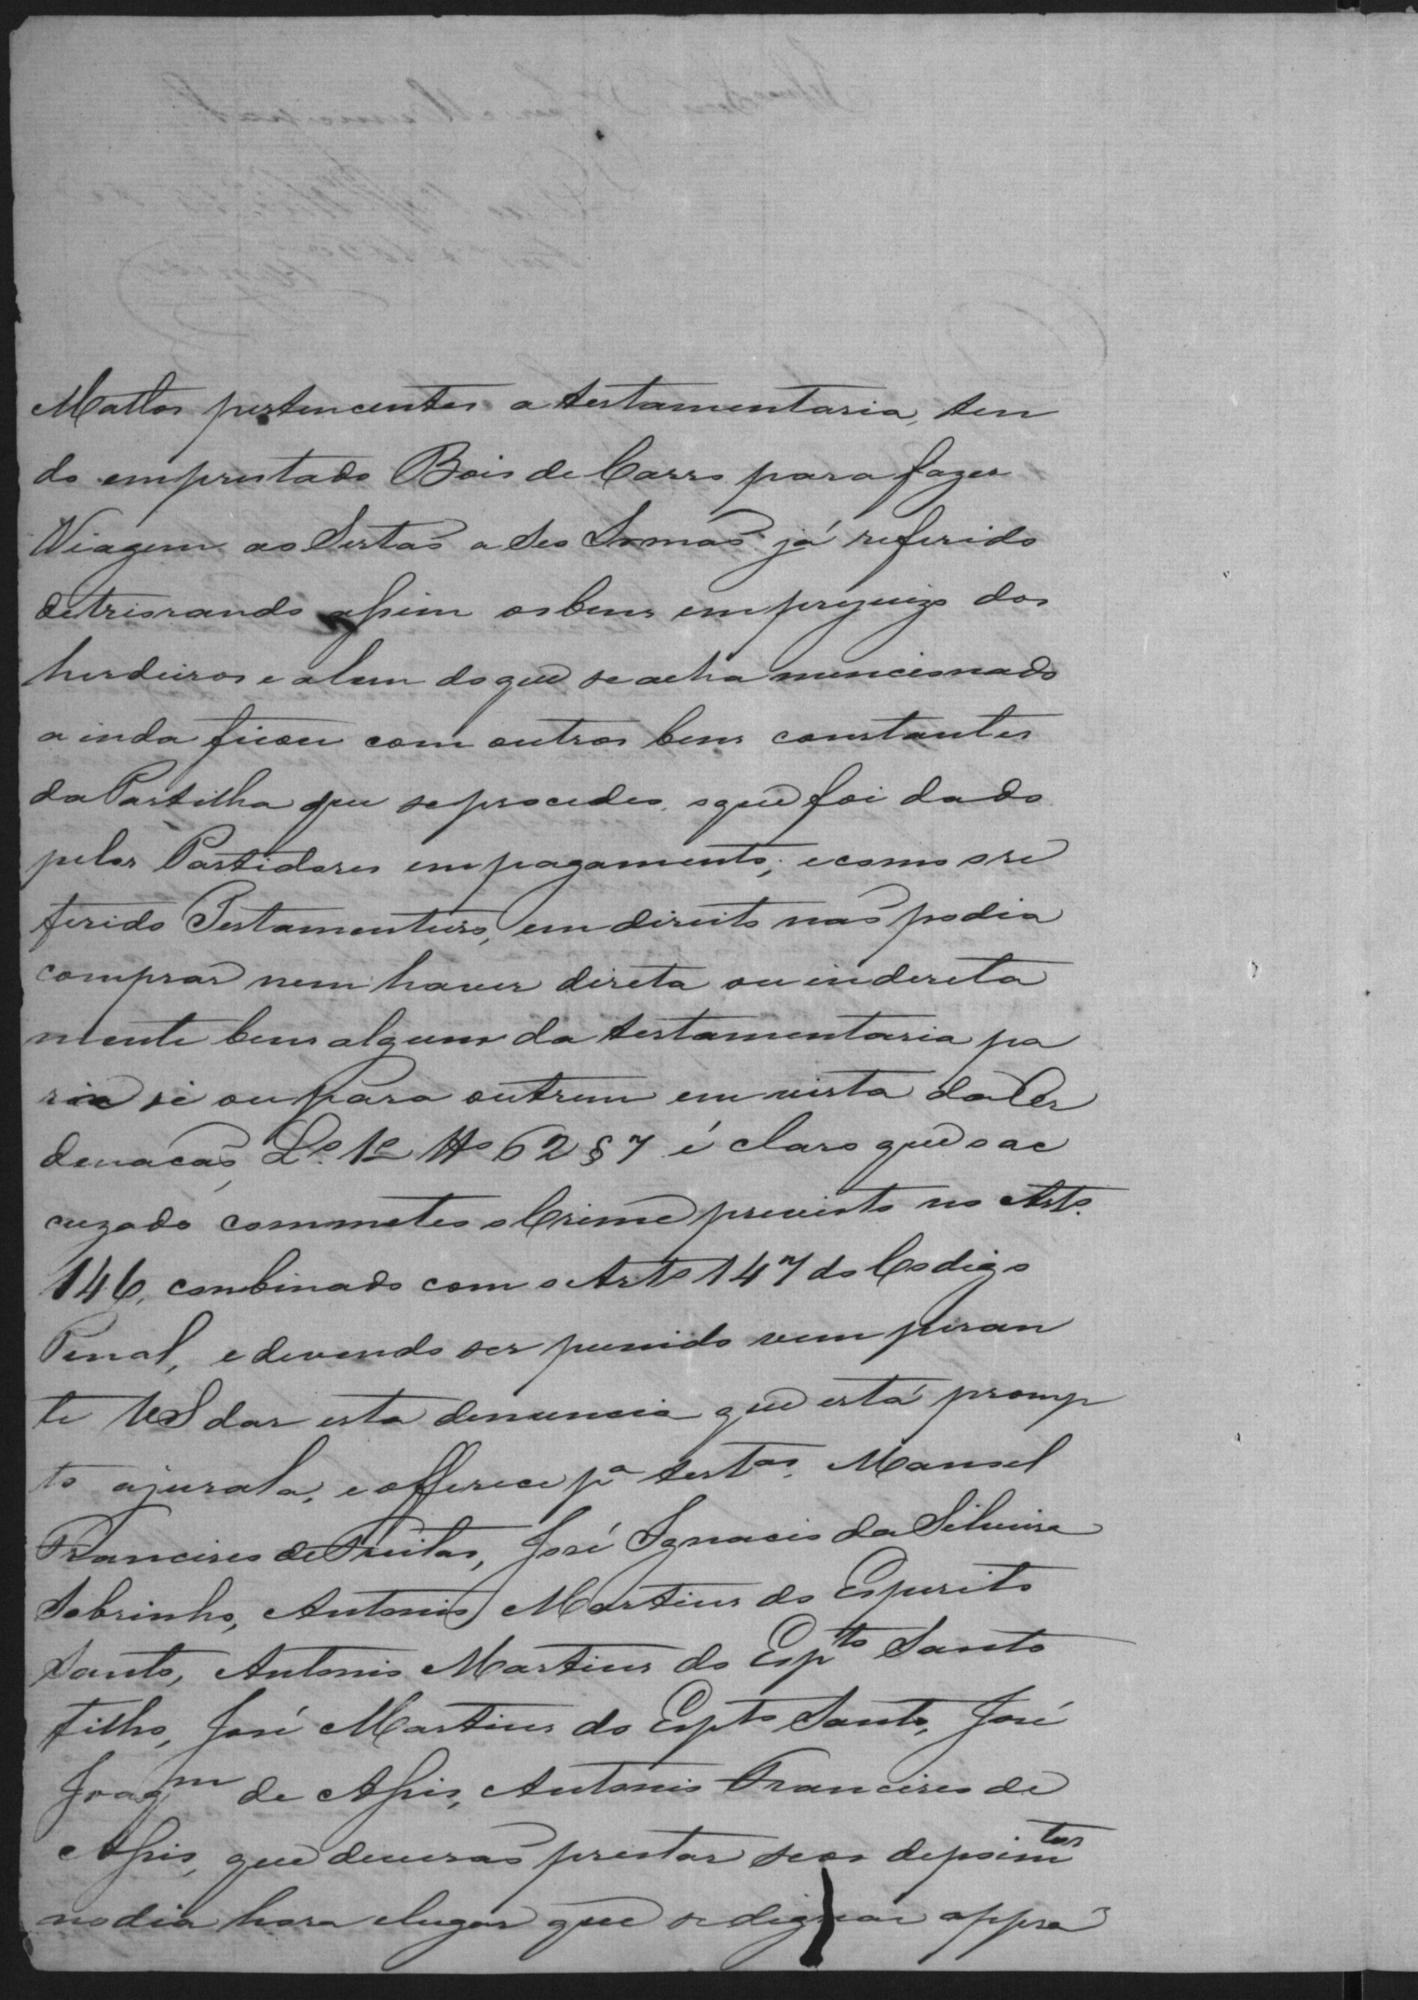 Mattos pertencentes a testamentaria, ten
do emprestado Bois de Carro para fazer
Viagem ao Sertaõ a Seo Irmaõ já referido
detriorando assim os bens em prejuizo dos
herdeiros e alem do que se acha mencionado
ainda ficou com outros bens constantes
da Partilha que se procedeo, o que foi dado
pelos Partidores em pagamento; e como o re
ferido Testamenteiro, em direito naõ podia
comprar nem haver direta ou indereta
mente bens algum da testamentaria pa
ra si ou para outrem em vista da Or
denacaõ, Lº 1º tto 62 § 7 é claro que o ac
cuzado commeteo o Crime previsto no Arto.
146, combinado com o Arto 147 do Codigo
Penal, e devendo ser punido vem peran
te VS dar esta denuncia que está promp
to a jurala, e offerece pª testas. Manoel
Francisco de Freitas, José Ignacio da Silveira
Sobrinho, Antonio Martins do Espirito
Santo, Antonio Martins do Espto Santo
filho, José Martins do Espto Santo, José
Joaqm de Assis, Antonio Francisco de
Assis, que deveraõ prestar seos depoimtos
no dia hora e lugar que se dignar appra